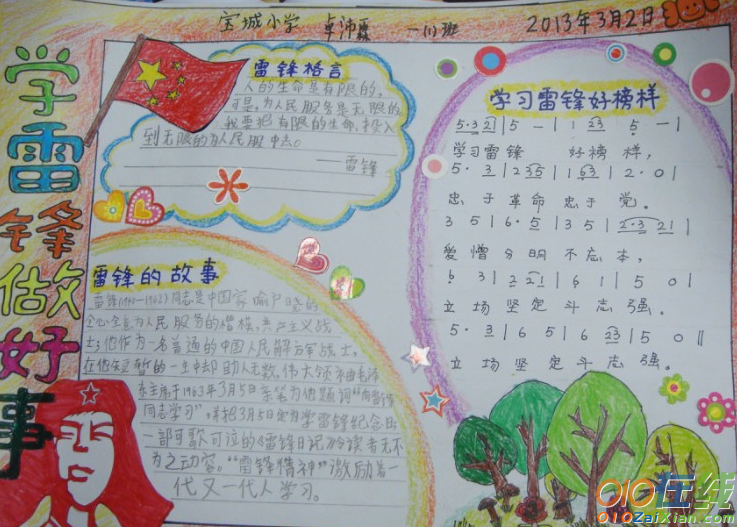 宝城小学 卓沛霖 一(1)班 2013年3月2日
学雷锋做好事
雷锋格言
人的生命是有限的，
可是，为人民服务是无限的
我要把有限的生命，投入
到无限的为人民服中去。
——雷锋
学习雷锋好榜样
5·3 2|5 —|1 23 5 —|
学习雷锋 好榜样，
5· 3|2 35|1 63|2·0|
忠于革命忠于党。
3 5|6·5|3 5|2·3 21|
爱憎分明不忘本，
6 3|2 21|6 1|5 0|
立场坚定斗志强。
5· 3|6 5|6 23|5 0‖
立场坚定斗志强。
雷锋的故事
雷锋(1940-1962)同志是中国家喻户晓的
全心全意为人民服务的楷模，共产主义战
士；他作为一名普通的中国人民解放军战士，
在他短暂的一生中却助人无数，伟大领袖毛泽
东主席于1963年3月5日亲笔为他题词“向雷锋
同志学习”，并把3月5日定为学雷锋纪念日
一部可歌可泣的《雷锋日记》令读者无不
为之动容。“雷锋精神”激励着一
代又一代人学习。
010在线
010ZaiXian.com